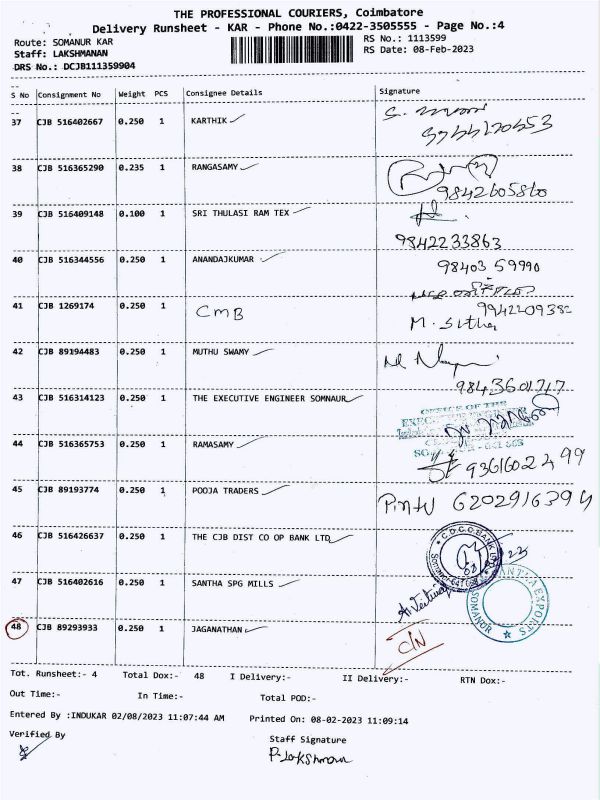 THE PROFESSIONAL COURIERS, Coimbatore
Delivery Runsheet - KAR - Phone No.:0422-3505555 - Page No.:4
Route: SOMANUR KAR
RS No.: 1113599
Staff: LAKSHMANAN
RS Date: 08-Feb-2023
DRS No.: DCJB111359904
S No Consignment No Weight PCS Consignee Details Signature
37 CJB 516402667 0.250 1 KARTHIK
38 CJB 516365290 0.235 1 RANGASAMY
9842605860
39 CJB 516409148 0.100 1 SRI THULASI RAM TEX
9842233863
40 CJB 516344556 0.250 1 ANANDAJKUMAR
98403 59990
41 CJB 1269174 0.250 1 CMB
9942209382
42 CJB 89194483 0.250 1 MUTHU SWAMY
9843601717
43 CJB 516314123 0.250 1 THE EXECUTIVE ENGINEER SOMNAUR
OFFICE OF THE
44 CJB 516365753 0.250 1 RAMASAMY
9361602499
45 CJB 89193774 0.250 1 POOJA TRADERS
Pintu 6202916394
46 CJB 516426637 0.250 1 THE CJB DIST CO OP BANK LTD
47 CJB 516402616 0.250 1 SANTHA SPG MILLS
48 CJB 89293933 0.250 1 JAGANATHAN
C/N
Tot. Runsheet:- 4 Total Dox:- 48 I Delivery:- II Delivery:- RTN Dox:-
Out Time:- In Time:- Total POD:-
Entered By :INDUKAR 02/08/2023 11:07:44 AM Printed On: 08-02-2023 11:09:14
Verified By
Staff Signature
P. Lakshmanan